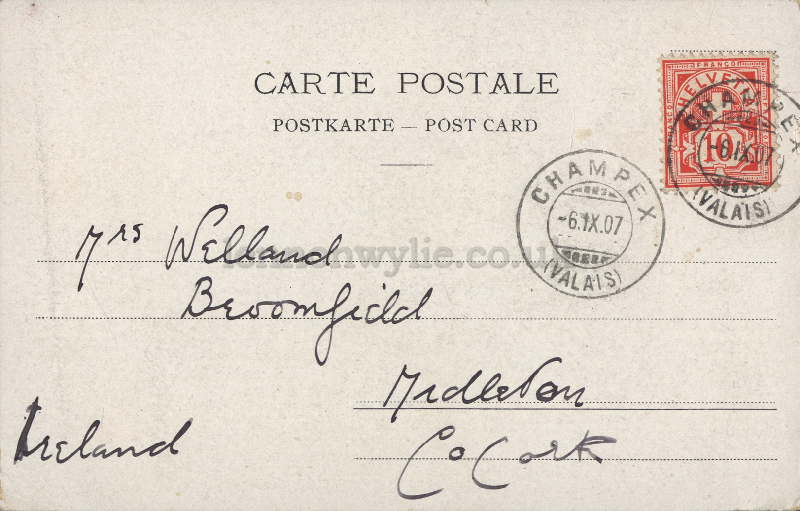 CARTE POSTALE
POSTKARTE — POST CARD
FRANCO
HELVETIA
10
CHAMPEX
-6.IX.07
(VALAIS)
CHAMPEX
-6.IX.07
(VALAIS)
Mrs Welland
lennonwylie.co.uk
Broomfield
Midleton
Co Cork
Ireland